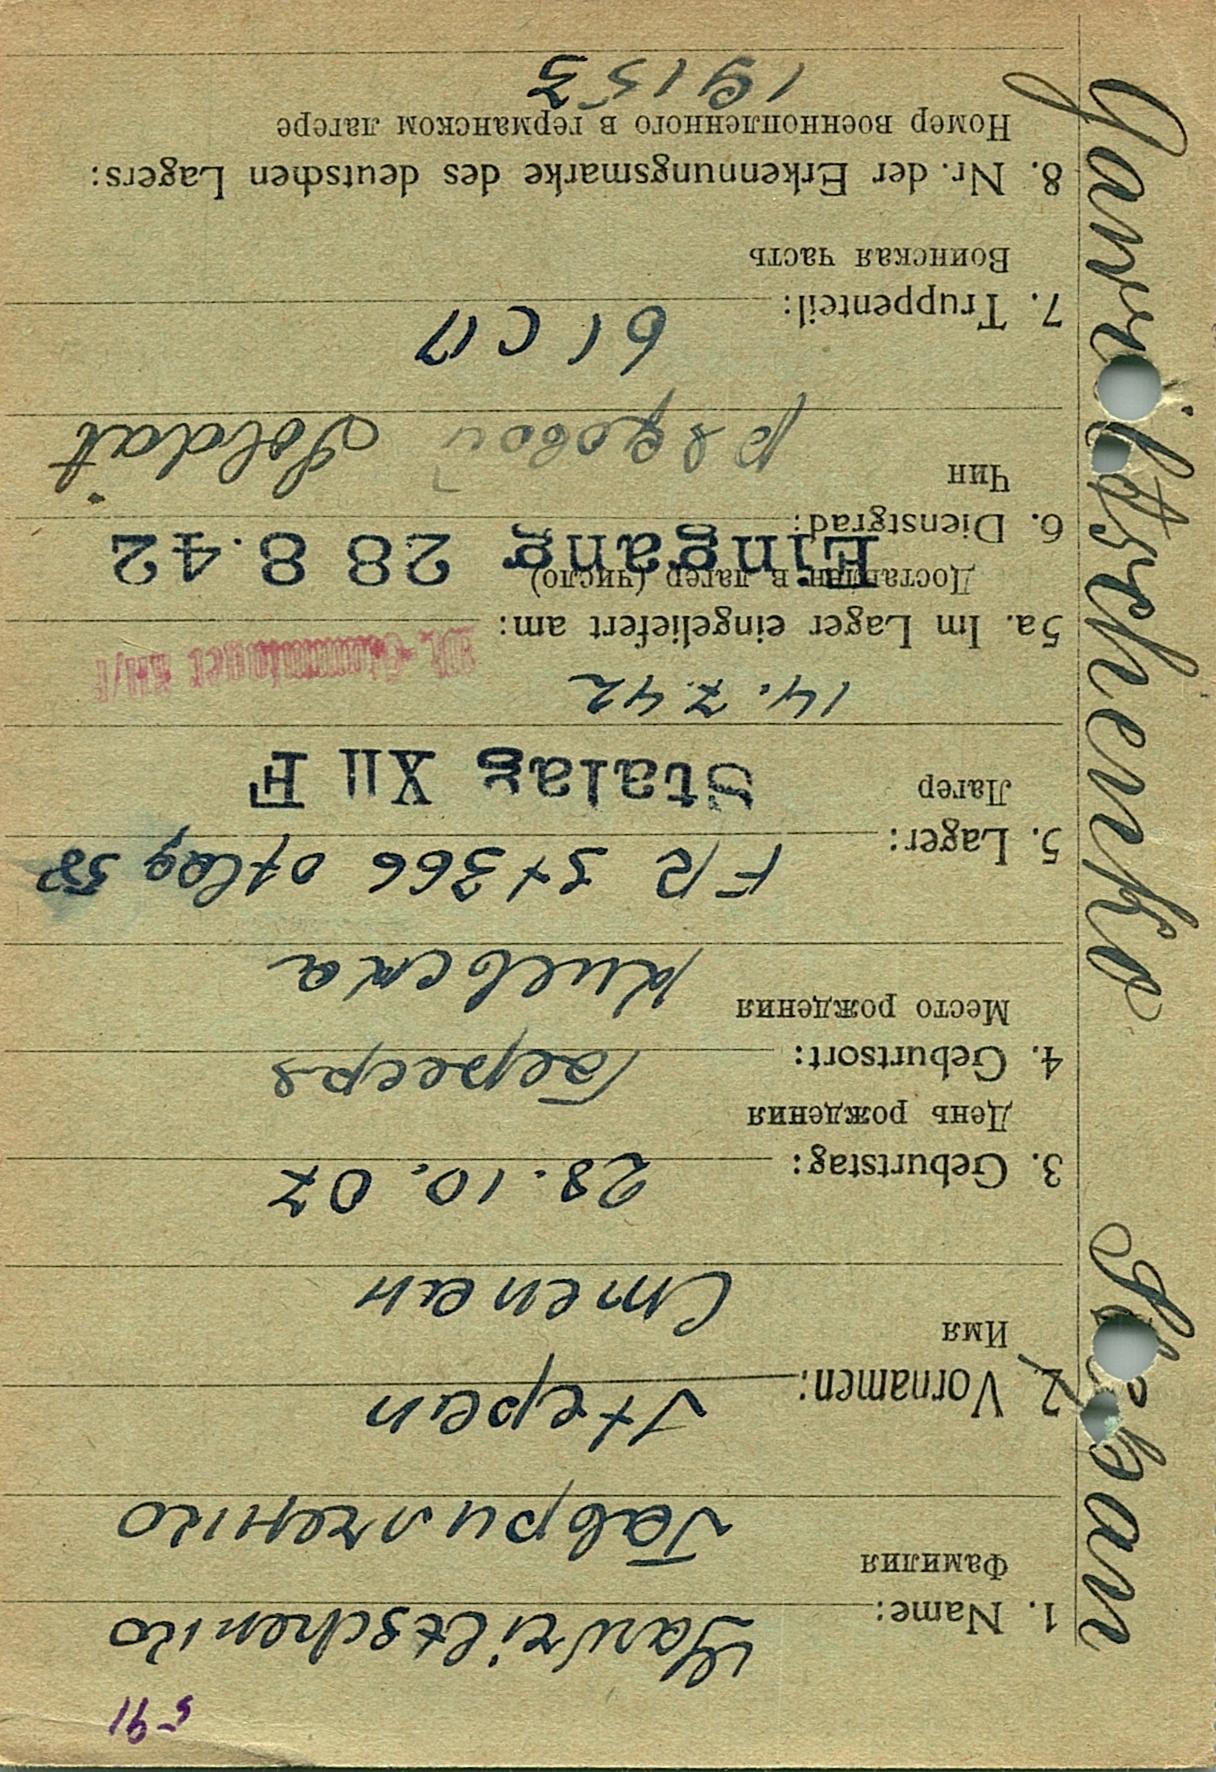 5-91
Gawriltschenko
1. Name:
Фамилия
Гаврилченко
Stepan
2. Vornamen:
Имя
Степан
28.10.07
3. Geburtstag:
День рождения
4. Geburtsort:
Место рождения
Киевска
FR St 366 oflag 58
5. Lager:
Лагер
Stalag XII F
14. 7. 42
5a. Im Lager eingeliefert am:
Доставлен в лагер (число)
Eingang 28 8.42
6. Dienstgrad:
Чин
рядовой Soldat
61 СП
7. Truppenteil:
Воинская часть
8. Nr. der Erkennungsmarke des deutschen Lagers:
Номер военнопленного в германском лагере
19153
Gawriltschenko Stepan